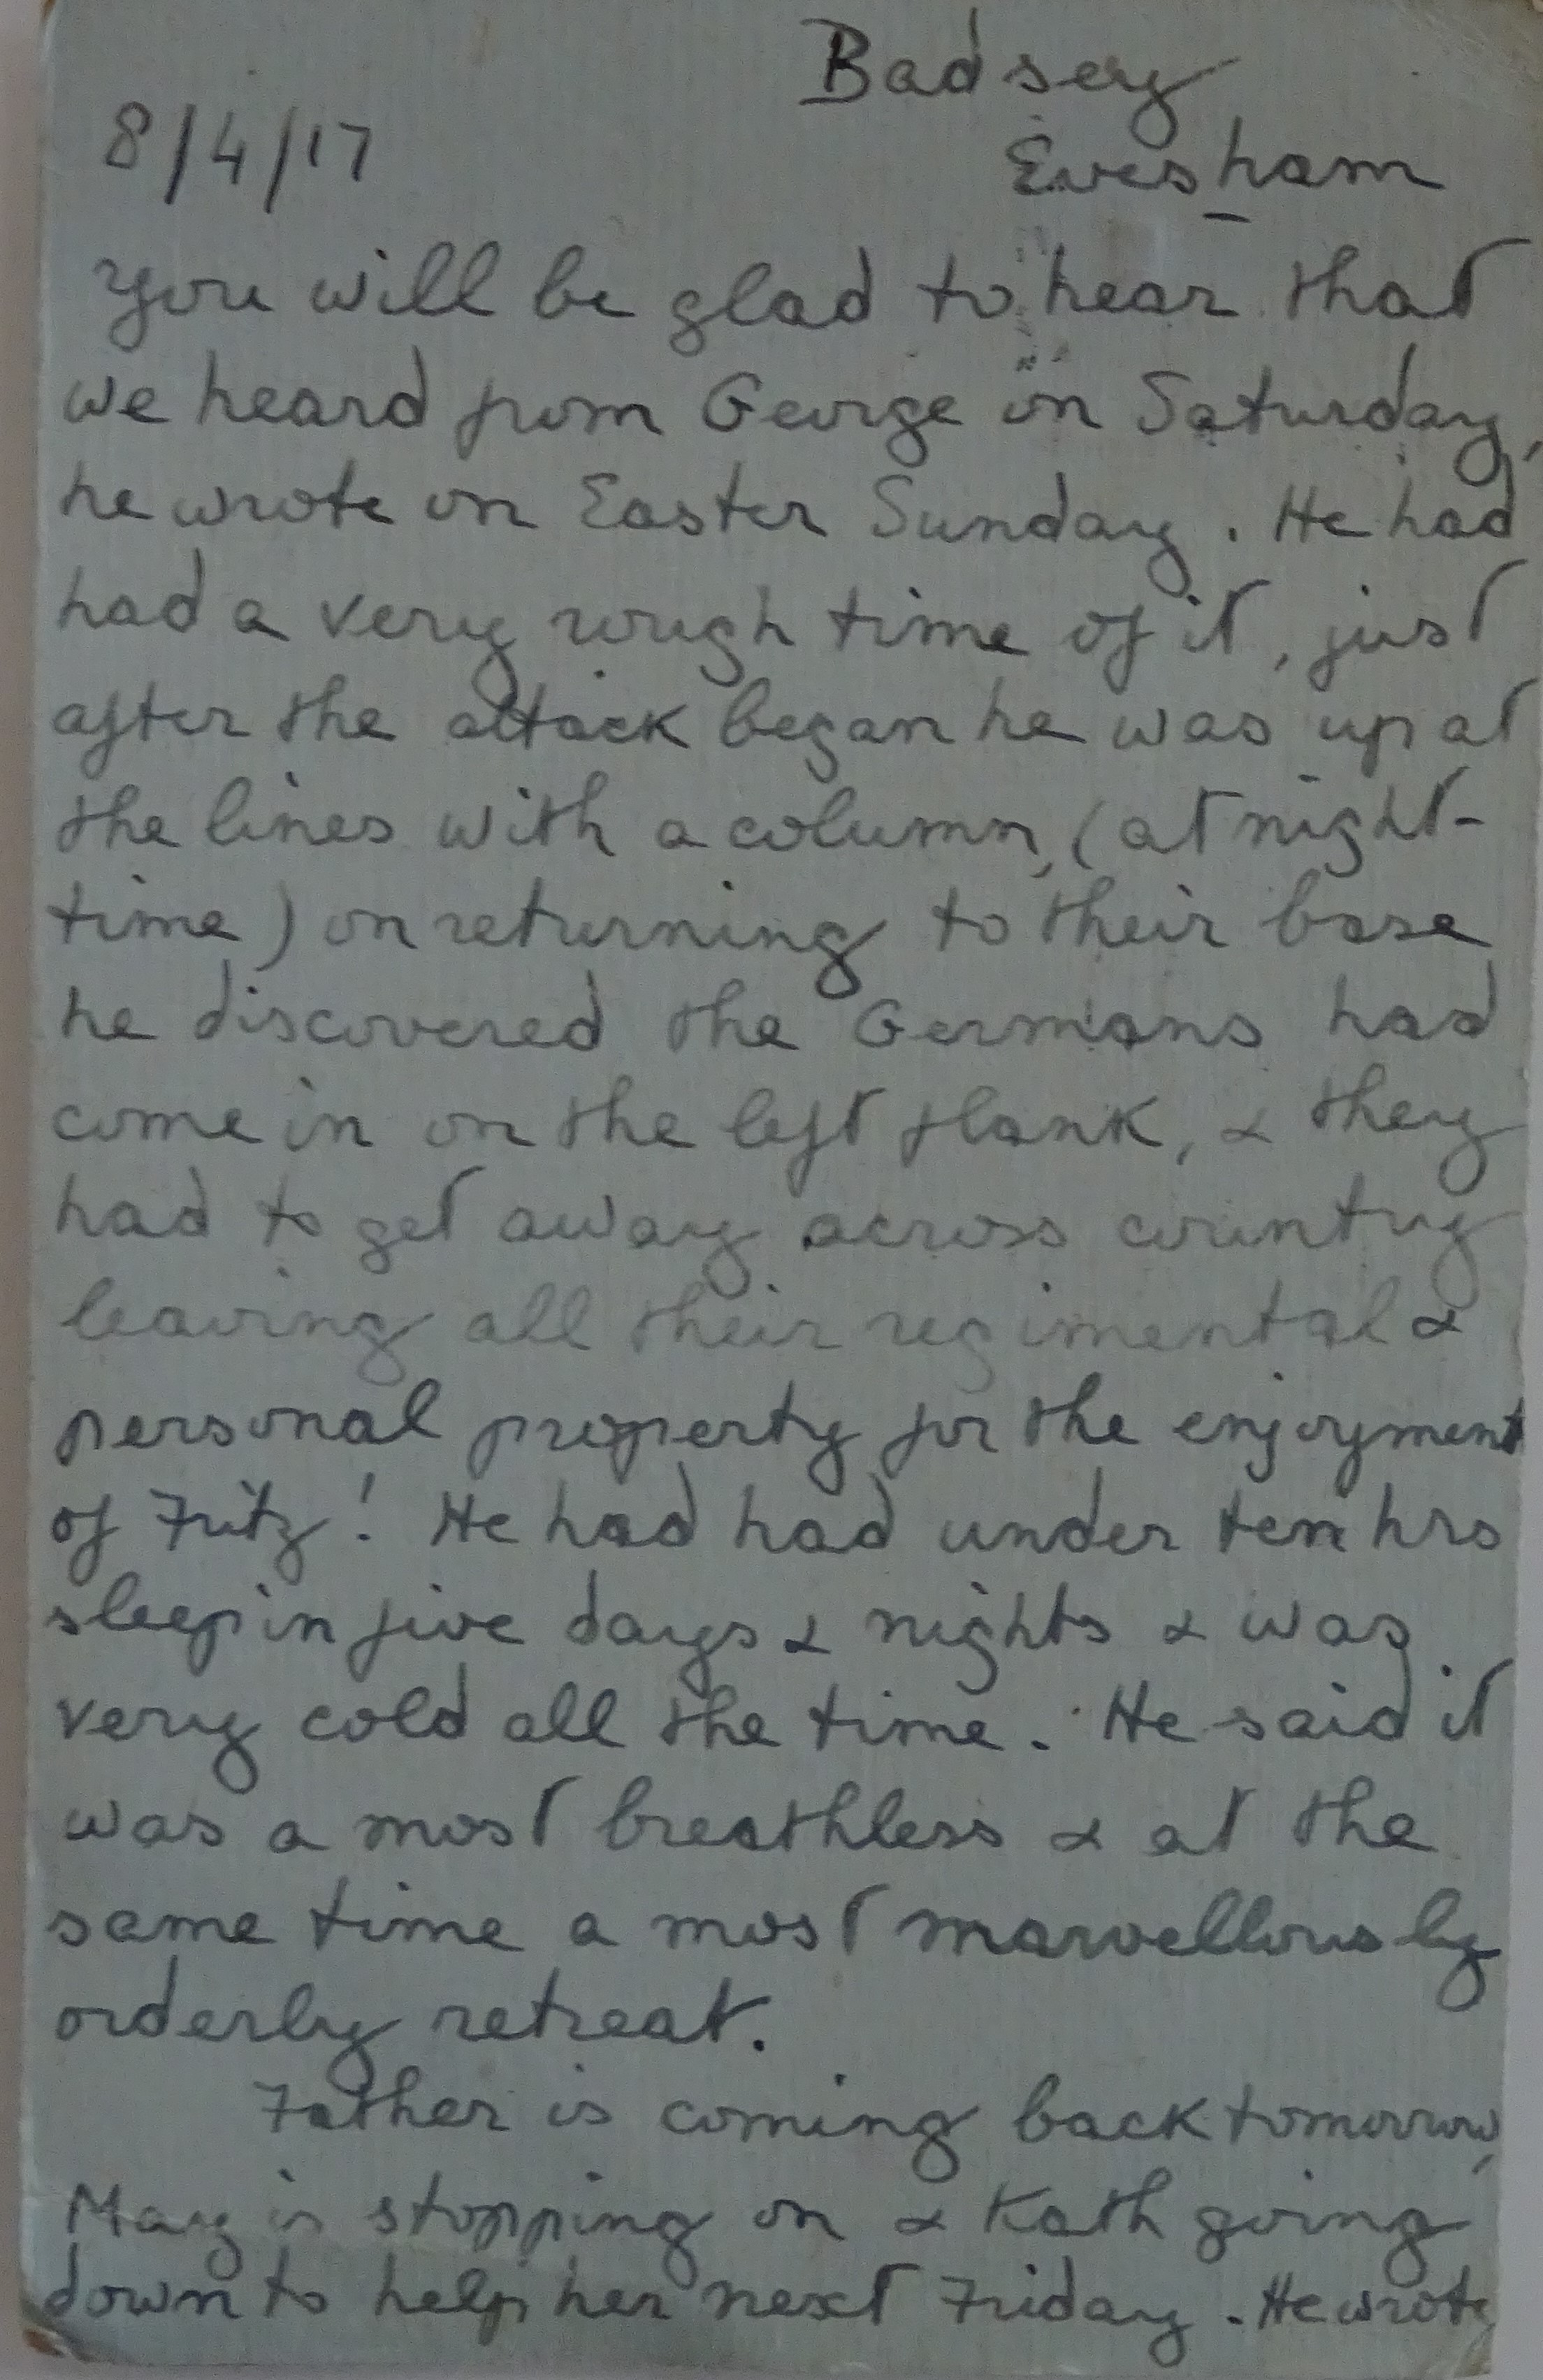 Badsey
8/4/17
Evesham
You will be glad to hear that
we heard from George on Saturday,
he wrote on Easter Sunday. He had
had a very rough time of it, just
after the attack began he was up at
the lines with a column, (at night-
time) on returning to their base
he discovered the Germans had
come in on the left flank, & they
had to get away across country
leaving all their regimental &
personal property for the enjoyment
of Fritz! He had had under ten hrs
sleep in five days & nights & was
very cold all the time. He said it
was a most breathless & at the
same time a most marvellously
orderly retreat.
Father is coming back tomorrow,
May is stopping on & Kath going
down to help her next Friday. He wrote